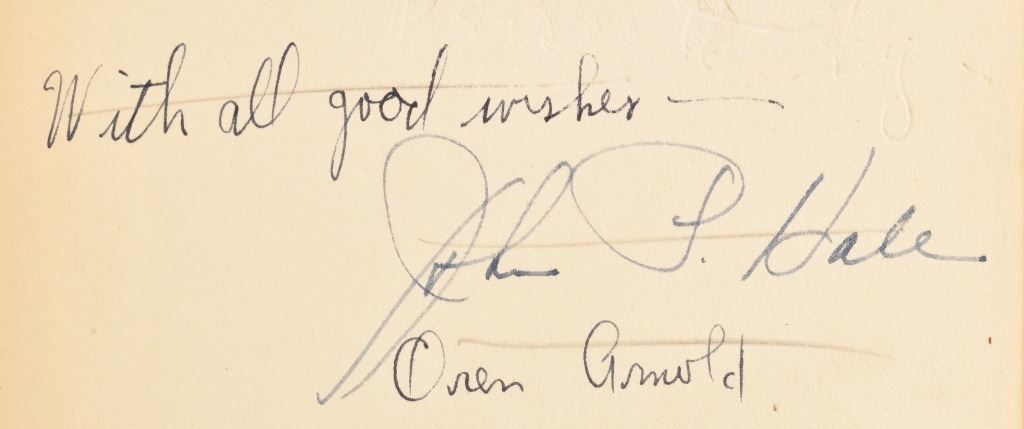 With all good wishes —
John P. Hale
Oren Arnold